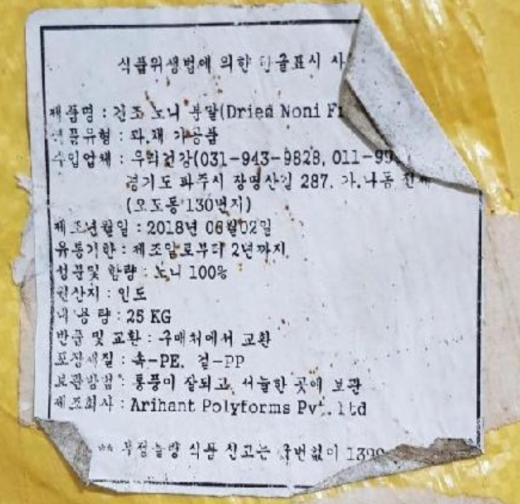 식품위생법에 의한 한글표시 사
제품명 : 건조 노니 분말(Dried Noni F
식품유형 : 과.채 가공품
수입업체 : 우리건강(031-943-9828, 011-99
경기도 파주시 장명산길 287. 가.나동 전체
(오도동 130번지)
제조년월일 : 2018년 06월02일
유통기한 : 제조일로부터 2년까지
성분및 함량 : 노니 100%
원산지 : 인도
내 용 량 : 25 KG
반품 및 교환 : 구매처에서 교환
포장재질 : 속-PE. 겉-PP
보관방법 : 통풍이 잘되고 서늘한 곳에 보관
제조회사 : Arihant Polyforms Pvt. ltd
** 부정불량 식품 신고는 국번없이 1399